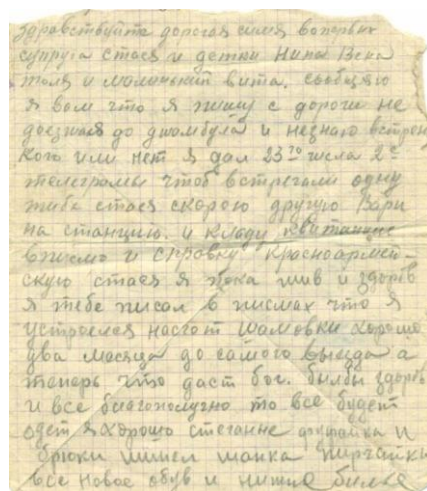 здравствуйте дорогая симя вопервых
супруга стася и детки Нина Века
толя и малинький вита. сообщяю
я вам что я пишу с дороги не
доезжая до джамбула и незнаю встрен
кого или нет я дал 23го числа 2е
телеграмы чтоб встрегали одну
стася скорою другую Вари
на станцию. и клади квитанцие
вписмо и справку красноармей-
скую стася я пока жив и здоров
я тебе писал в писмах что я
устроелся насчот шамовки хорошо
два месяца до самого выезда а
теперь что даст бог. былбы здоров
и все благополучно то все будет
одет я хорошо стеганне фуфайка и
брюки шинел шапка пирчатки
все новое обув и нижне билье